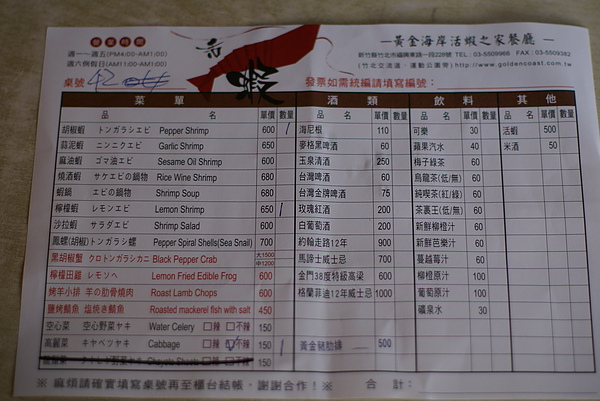 營業時間
週一～週五(PM4:00-AM1:00)
週六例假日(AM11:00-AM1:00)
桌號 42
香 蝦
黃金海岸活蝦之家餐廳
新竹縣竹北市福興東路一段228號 TEL : 03-5509966 FAX : 03-5509362
(竹北交流道‧運動公園旁) http://www.goldencoast.com.tw
發票如需統編請填寫編號：
菜 單 酒 類 飲 料 其 他
品 名 單價 數量 品 名 單價 數量 品 名 單價 數量 品 名 單價 數量
胡椒蝦 トンガラシエビ Pepper Shrimp 600 / 海尼根 110 可樂 30 活蝦 500
蒜泥蝦 ニンニクエビ Garlic Shrimp 650 麥格黑啤酒 60 蘋果汽水 40 米酒 50
麻油蝦 ゴマ油エビ Sesame Oil Shrimp 600 玉泉清酒 250 梅子綠茶 60
燒酒蝦 サケエビの鍋物 Rice Wine Shrimp 680 台灣啤酒 60 烏龍茶(低/無) 60
蝦鍋 エビの鍋物 Shrimp Soup 680 台灣金牌啤酒 75 純喫茶(紅/綠) 60
檸檬蝦 レモンエビ Lemon Shrimp 650 / 玫瑰紅酒 200 茶裏王(低/無) 60
沙拉蝦 サラダエビ Shrimp Salad 600 白葡萄酒 200 新鮮柳橙汁 60
鳳螺(胡椒)トンガラシ螺 Pepper Spiral Shells(Sea Snail) 700 約翰走路12年 900 新鮮芭樂汁 60
黑胡椒蟹 クロトンガラシカニ Black Pepper Crab 大1500 中1200 馬諦士威士忌 700 蔓越莓汁 60
檸檬田雞 レモソヘ Lemon Fried Edible Frog 600 金門38度特級高梁 600 柳橙原汁 100
烤羊小排 羊の肋骨燒肉 Roast Lamb Chops 600 格蘭菲迪12年威士忌 1000 葡萄原汁 100
鹽烤鯖魚 塩焼き鯖魚 Roasted mackerel fish with salt 450 礦泉水 30
空心菜 空心野菜ヤキ Water Celery □辣 □不辣 150
高麗菜 キヤベツヤキ Cabbage □辣 □不辣 150 / 黃金豬肋排 500
150
※ 麻煩請確實填寫桌號再至櫃台結帳，謝謝合作！※ 合 計：